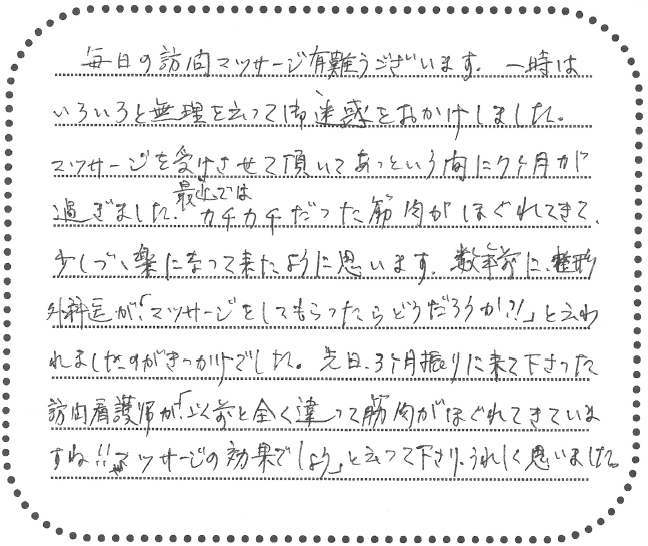 毎日の訪問マッサージ有難うございます。一時は
いろいろと無理を云って御迷惑をおかけしました。
マッサージを受けさせて頂いてあっという間に7ヶ月が
過ぎました。最近ではカチカチだった筋肉がほぐれてきて、
少しづゝ楽になって来たように思います。数年前に、整形
外科医が、「マッサージをしてもらったらどうだろうか?!」と云わ
れましたのがきっかけでした。先日、3ヶ月振りに来て下さった
訪問看護師が、「以前と全く違って筋肉がほぐれてきていま
すね!!マッサージの効果でしょう」と云って下さり、うれしく思いました。